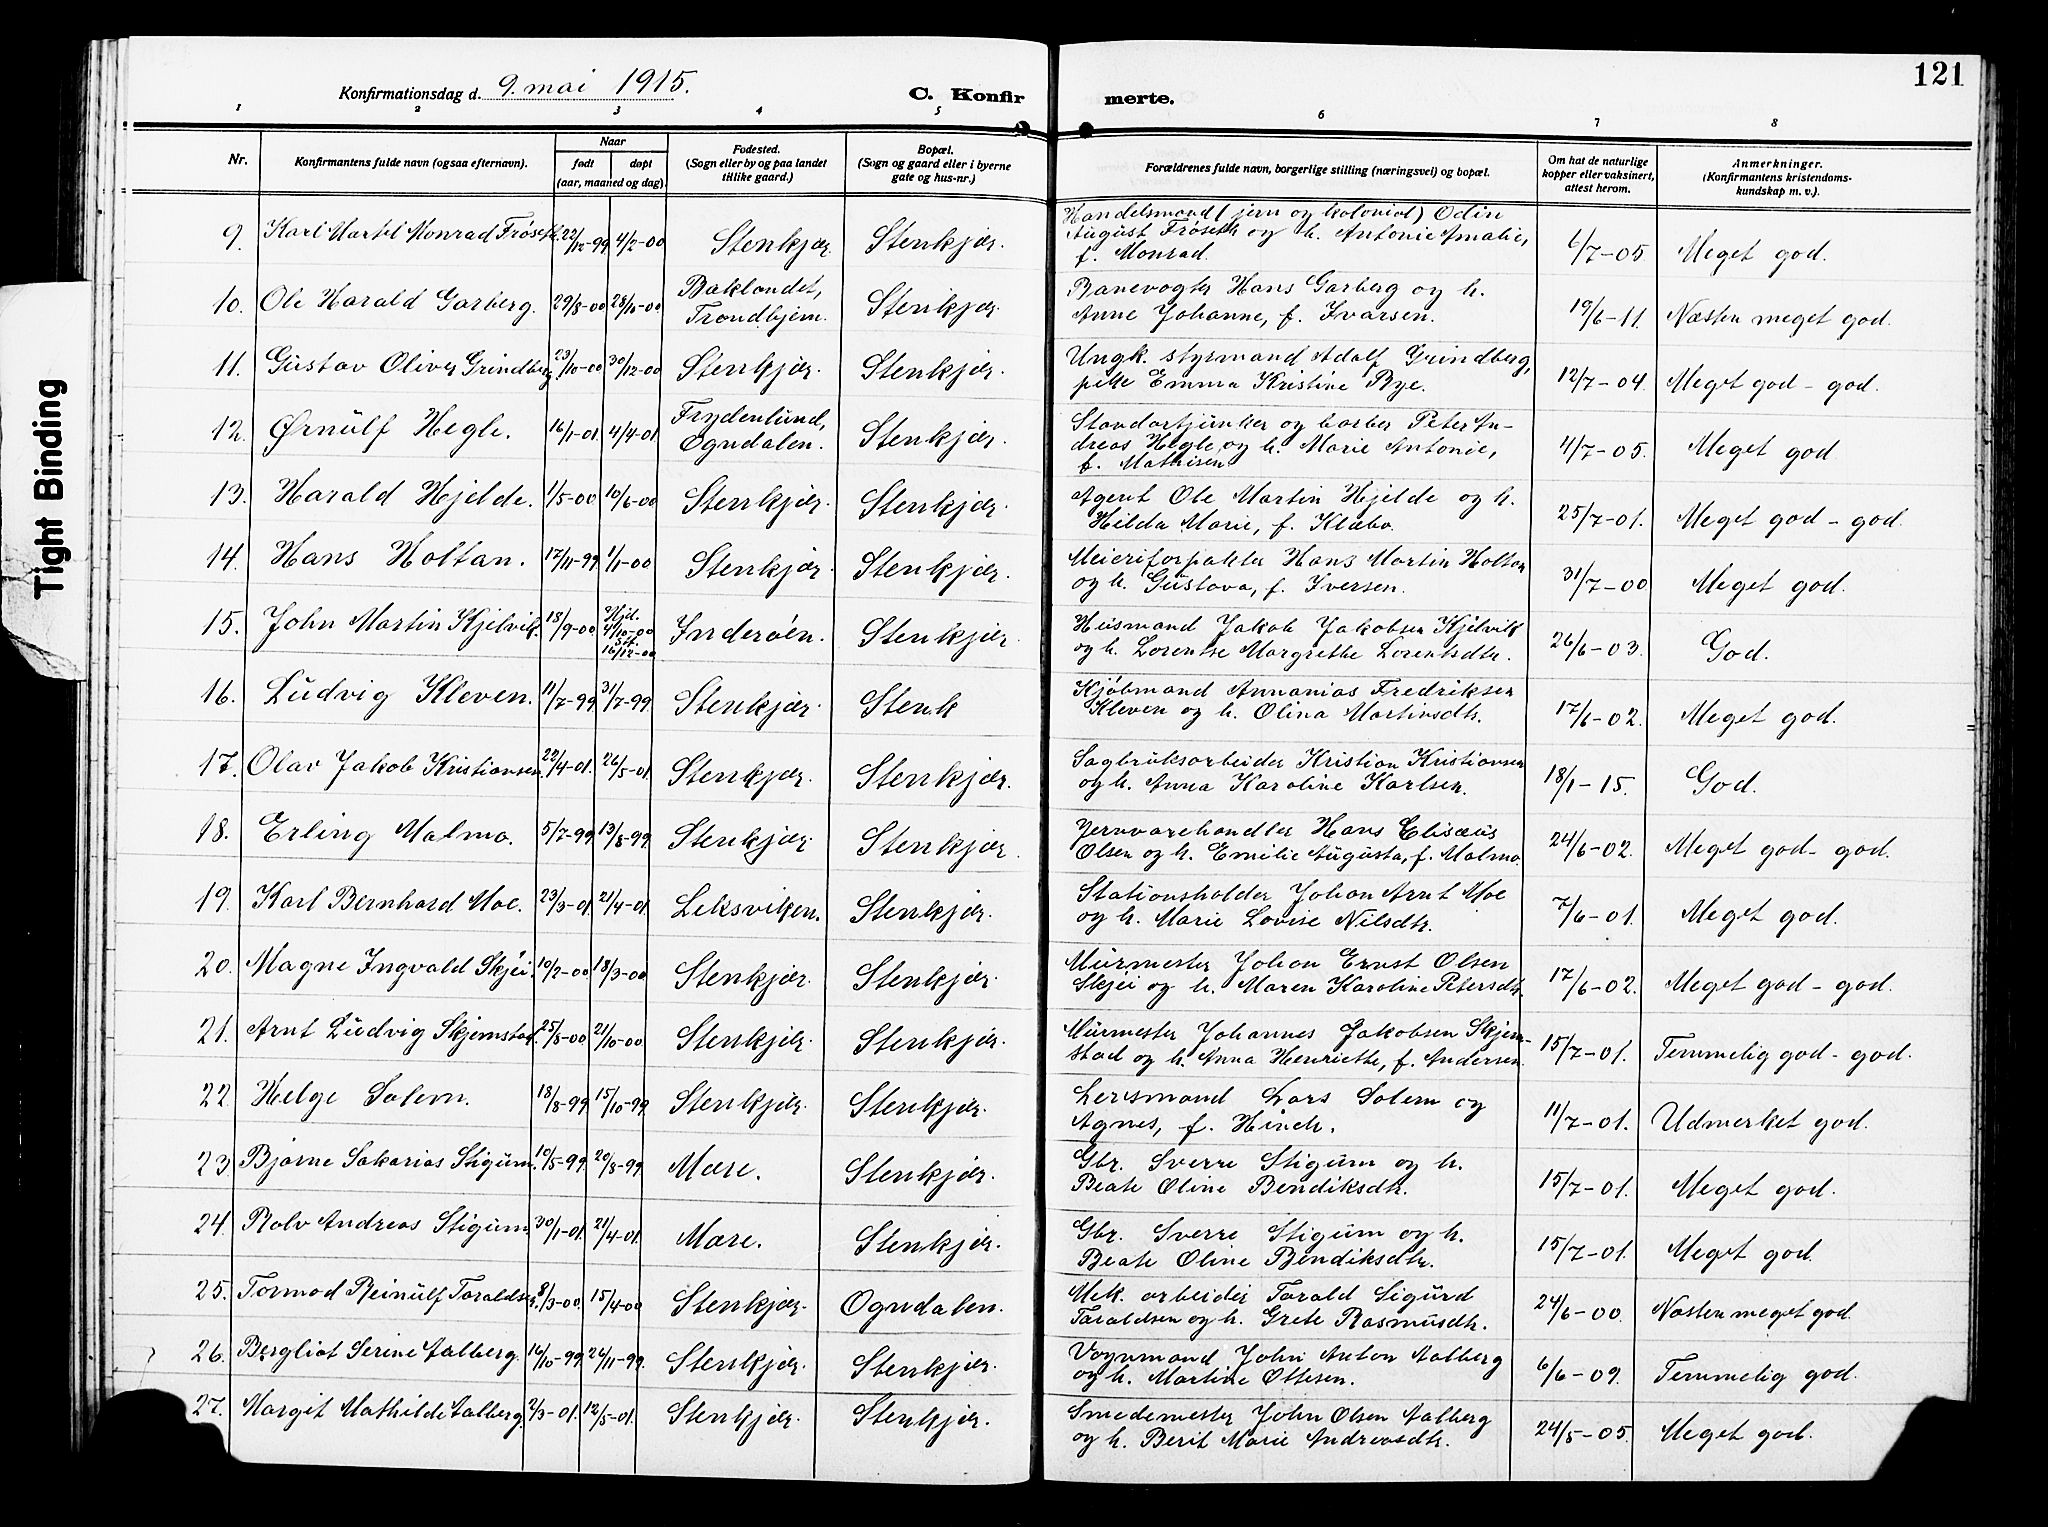 121
Konfirmationsdag d. 9. mai 1915.
C. Konfirmerte.
1 2 3 4 5 6 7 8
Nr. Konfirmantens fulde navn (ogsaa efternavn). Naar født døpt (aar, maaned og dag). Fødested. (Sogn eller by og paa landet tillike gaard.) Bopæl. (Sogn og gaard eller i byerne gate og hus-nr.) Forældrenes fulde navn, borgerlige stilling (næringsvei) og bopæl. Om hat de naturlige kopper eller vaksinert, attest herom. Anmerkninger. (Konfirmantens kristendomskundskap m. v.).
9. Karl Martel Monrad Frøseth 22/12-99 4/2-00 Stenkjær. Stenkjær. Handelsmand (jern og kolonial) Odin
August Frøseth og h. Antonie Amalie,
f. Monrad. 6/7-05 Meget god.
10. Ole Harald Garberg. 29/8-00 28/10-00 Baklandet, Trondhjem. Stenkjær. Banevogter Hans Garberg og h.
Anne Johanne, f. Ivarsen. 19/6-11. Næsten meget god.
11. Gustav Oliver Grindberg. 23/10-00 30/12-00 Stenkjær. Stenkjær. Ungk. styrmand Adolf Grindberg,
pike Emma Kristine Bye. 12/7-04. Meget god - god.
12. Ørnulf Hegle. 16/1-01. 4/4-01. Frydenlund, Ogndalen. Stenkjær. Standartjunker og barber Peter An-
dreas Hegle og h. Marie Antonie,
f. Mathisen 4/7-05. Meget god
13. Harald Hjelde. 1/5-00 10/6-00 Stenkjær. Stenkjær. Agent Ole Martin Hjelde og h.
Hilda Marie, f. Klæbo. 25/7-01. Meget god - god.
14. Hans Holtan. 17/11-99 1/1-00 Stenkjær. Stenkjær. Meieriforpakter Hans Martin Holtan
og h. Gustava, f. Iversen. 31/7-00 Meget god.
15. John Martin Kjelvik. 18/9-00 Hjd. 4/10-00 St. 16/12-00 Inderøen. Stenkjær. Husmand Jakob Jakobsen Kjelvik
og h. Lorentse Margrethe Lorentsdtr. 26/6-03. God.
16. Ludvig Kleven. 11/7-99 31/7-99. Stenkjær. Stenk Kjøbmand Annanias Fredriksen
Kleven og h. Olina Martinsdtr. 17/6-02. Meget god.
17. Olav Jakob Kristiansen. 22/4-01. 26/5-01. Stenkjær. Stenkjær. Sagbruksarbeider Kristian Kristiansen
og h. Anna Karoline Karlsen. 18/1-15. God.
18. Erling Malmo. 5/7-99 13/8-99. Stenkjær. Stenkjær. Jernvarehandler Hans Elisæus
Olsen og h. Emilie Augusta, f. Malmo. 24/6-02. Meget god - god.
19. Karl Bernhard Moe. 23/3-01. 21/4-01. Leksviken. Stenkjær. Stationsholder Johan Arnt Moe
og h. Marie Lovise Nilsdtr. 7/6-01. Meget god.
20. Magne Ingvald Skjei. 10/2-00 18/3-00 Stenkjær. Stenkjær. Murmester Johan Ernst Olsen
Skjei og h. Maren Karoline Petersdtr. 17/6-02. Meget god - god.
21. Arnt Ludvig Skjemstad. 25/8-00. 21/10-00. Stenkjær. Stenkjær. Murmester Johannes Jakobsen Skjem-
stad og h. Anna Henriette, f. Andersen. 15/7-01. Temmelig god - god.
22. Helge Solem. 18/8-99 15/10-99. Stenkjær. Stenkjær. Lensmand Lars Solem og
Agnes, f. Hinch. 11/7-01. Udmerket god.
23. Bjarne Sakarias Stigum. 10/5-99. 20/8-99. Mære. Stenkjær. Gbr. Sverre Stigum og h.
Beate Oline Bendiksdtr. 15/7-01. Meget god.
24. Rolv Andreas Stigum. 30/1-01. 21/4-01. Mære. Stenkjær. Gbr. Sverre Stigum og h.
Beate Oline Bendiksdtr. 15/7-01. Meget god.
25. Tormod Reinulf Taraldsen. 8/3-00. 15/4-00 Stenkjær. Ogndalen. Mek. arbeider Tarald Sigurd
Taraldsen og h. Grete Rasmusdtr. 24/6-00. Næsten meget god.
26. Bergliot Serine Aalberg. 16/10-99. 26/11-99. Stenkjær. Stenkjær. Vognmand John Anton Aalberg
og h. Martine Ottesen. 6/6-09. Temmelig god.
27. Margit Mathilde Aalberg. 2/3-01. 12/5-01. Stenkjær. Stenkjær. Smedemester John Olsen Aalberg
og h. Berit Marie Andreasdtr. 24/5-05. Meget god.
Tight Binding